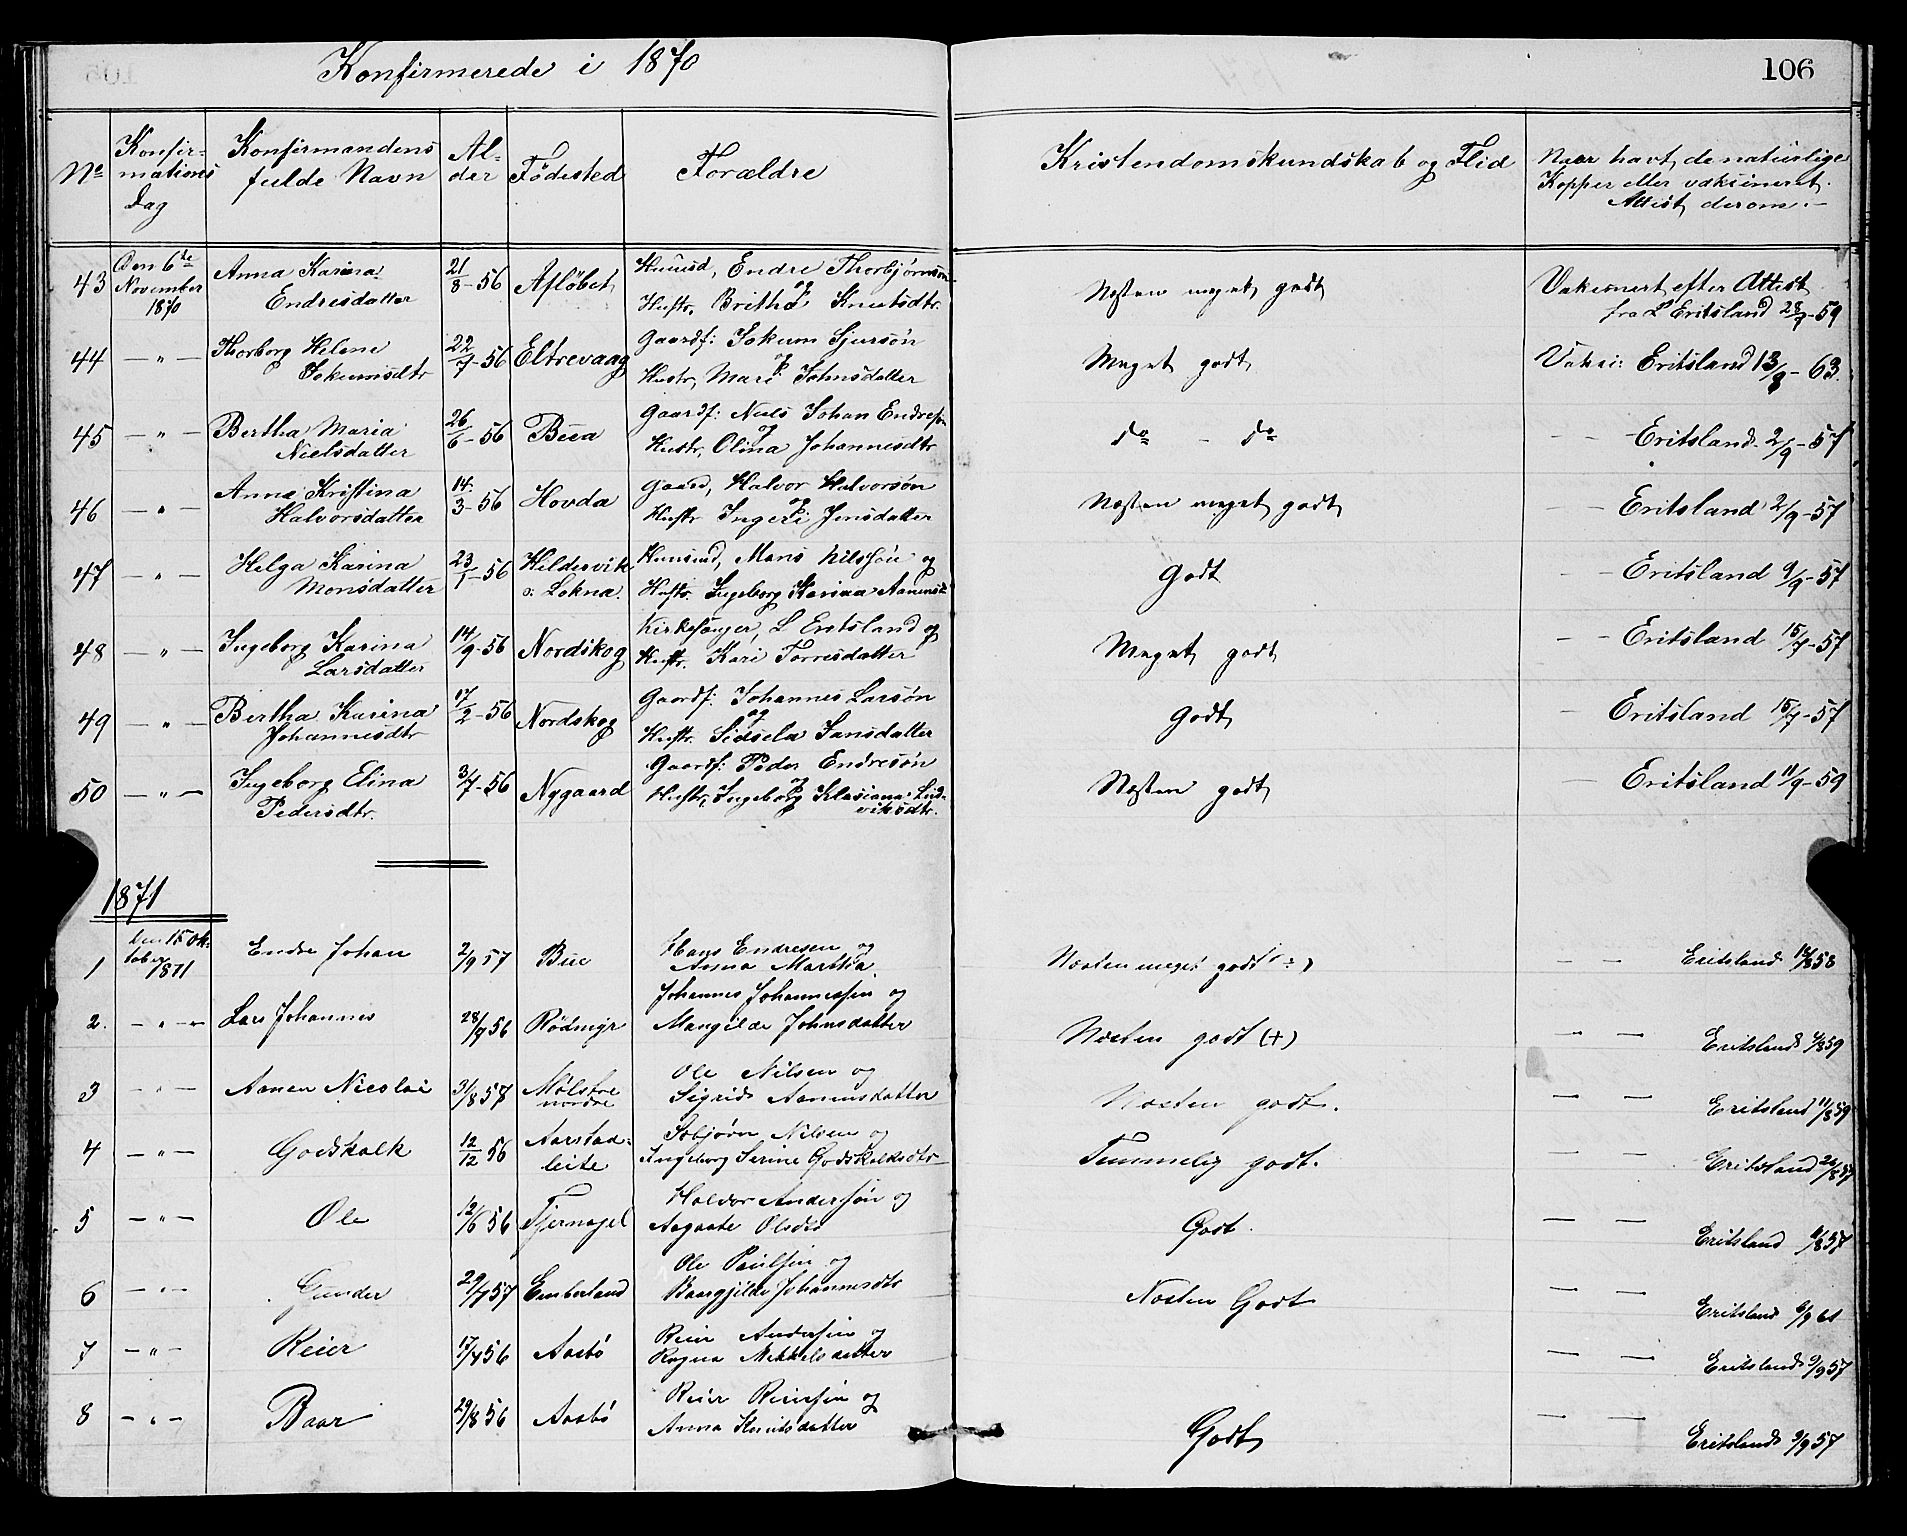 Konfirmerede i 1870
106
No
Konfir-
mations
Dag
Konfirmandens
fulde Navn
Al-
der
Födested
Forældre
Kristendomskundskab og Flid
Naar havt de naturlige
Kopper eller vaksineret.
Attest derom.-
43 Den 6te November 1870 Anna Karina Endresdatter 21/8-56 Aflöbet Huusd, Endre Thorbjørnsøn og Hustr. Britha Knutsdtr. Næsten meget godt Vaksinert efter Attest fra L Eritsland 28/9-59
44 - " - Thorborg Helene Jokumsdtr 22/7-56 Eltrevaag Gaardf: Jokum Sjursön og Hustr, Mari Johnsdatter Meget godt Vaksi: Eritsland 13/8-63.
45 - " - Bertha Maria Nielsdatter 26/6-56 Bua Gaardf: Niels Johan Endresøn og Hustr, Olina Johannesdtr do - do - - Eritsland 2/9-57
46 - " - Anna Kristina Halvorsdatter 14/3-56 Hovda Gaard, Halvor Halvorsön og Hustr Ingeri Jensdatter Næsten meget godt - - Eritsland 2/9-57
47 - " - Helga Karina Monsdatter 23/1-56 Hildesvik Lokna. Huusmd, Mons Nilssön og Hustr. Ingeborg Karina Godt - - Eritsland 9/9-57
48 - " - Ingeborg Karina Larsdatter 14/9-56 Nordskog Kirkesanger, L Eritsland og Hustr. Kari Torresdatter Meget godt - - Eritsland 15/7-57
49 - " - Bertha Karina Johannesdtr 17/2-56 Nordskog Gaardf: Johannes Larsön og Hustr. Sidsela Jansdatter Godt - Eritsland 15/7-57
50 - " - Ingeborg Elina Pedersdtr. 3/7-56 Nygaard Gaardf: Peder Endresön og Hustr, Ingeborg Klasiana Lud- viksdtr. Næsten godt - Eritsland 11/9-59
1871
1 Den 15 Oktober 1871 Endre Johan 2/9 57 Bue Hans Endresen og Anna Martha. Næsten meget godt - - Eritsland 18/8 58
2. - " - Lars Johannes 28/9 56 Rödmyr Johannes Johannessen og Mangilde Johnsdatter Næsten godt (+) - - Eritsland 59
3 - " - Aamen Nicolai 31/8 57 Mölstre nordre Ole Nilsen og Sigrid Aamundsdatter Næsten godt. - - Eritsland 11/8 59
4 - " - Godskalk 12/12 56 Aarstad- leite Asbjörn Nilsen og Ingeborg Serine Godskalksdtr Temmelig godt. - - Eritsland 57
5 - " - Ole 12/6 56 Tjernagel Halvor Andersön og Aagaate Olsdtr Godt. - - Eritsland 57
6 - " - Gunder 29/7 57 Emberland Ole Paulsen og Baargjilde Johannesdtr Næsten Godt - - Eritsland 6/9 61
7 - " - Reier 17/4 56 Aasbö Reier Andersen og Ragna Mikkelsdatter - - Eritsland 9/9 57
8 - " - Baar 29/8 56 Aasbö Reier Reiersen og Anna Knutsdatter Godt - - Eritsland 9/9 57